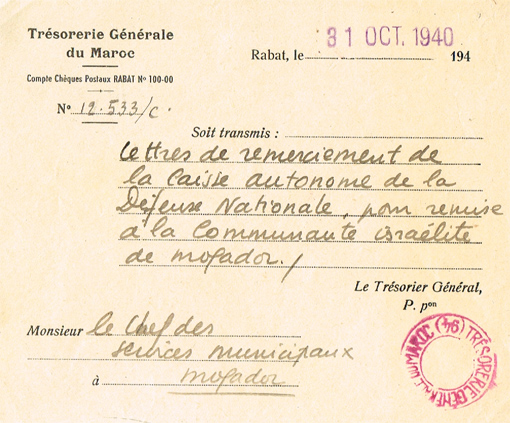 Trésorerie Générale
du Maroc
Compte Chèques Postaux RABAT Nº 100-00
Nº 12.533/c.
Rabat, le 31 OCT. 1940 194
Soit transmis :
Lettres de remerciement de
la Caisse autonome de la
Défense Nationale, pour remise
à la Communauté israélite
de mogador./
Le Trésorier Général,
P. pᵒⁿ
Monsieur le Chef des
services municipaux
à mogador
TRÉSORERIE GÉNÉRALE DU MAROC (94)